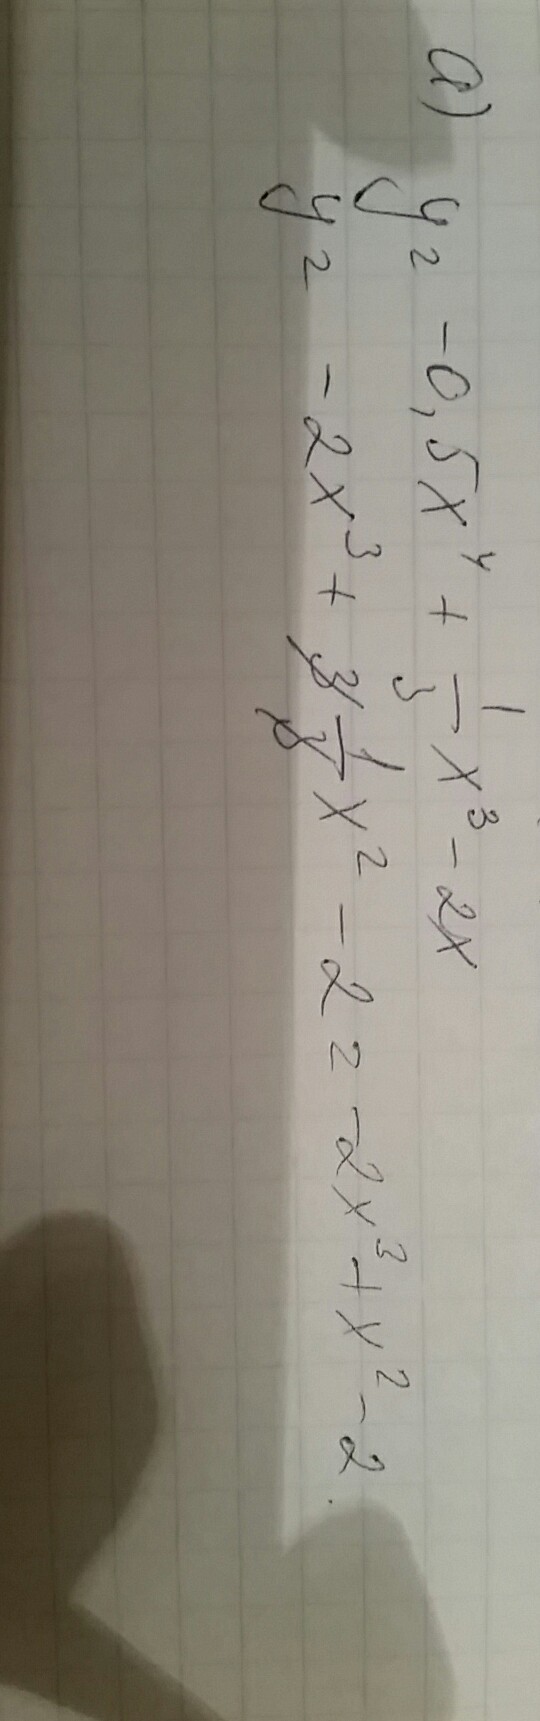 a)
y = -0,5x⁴ + 1/3 x³ - 2x
y = -2x³ + 3 1/3 x² - 2 = -2x³ + x² - 2.